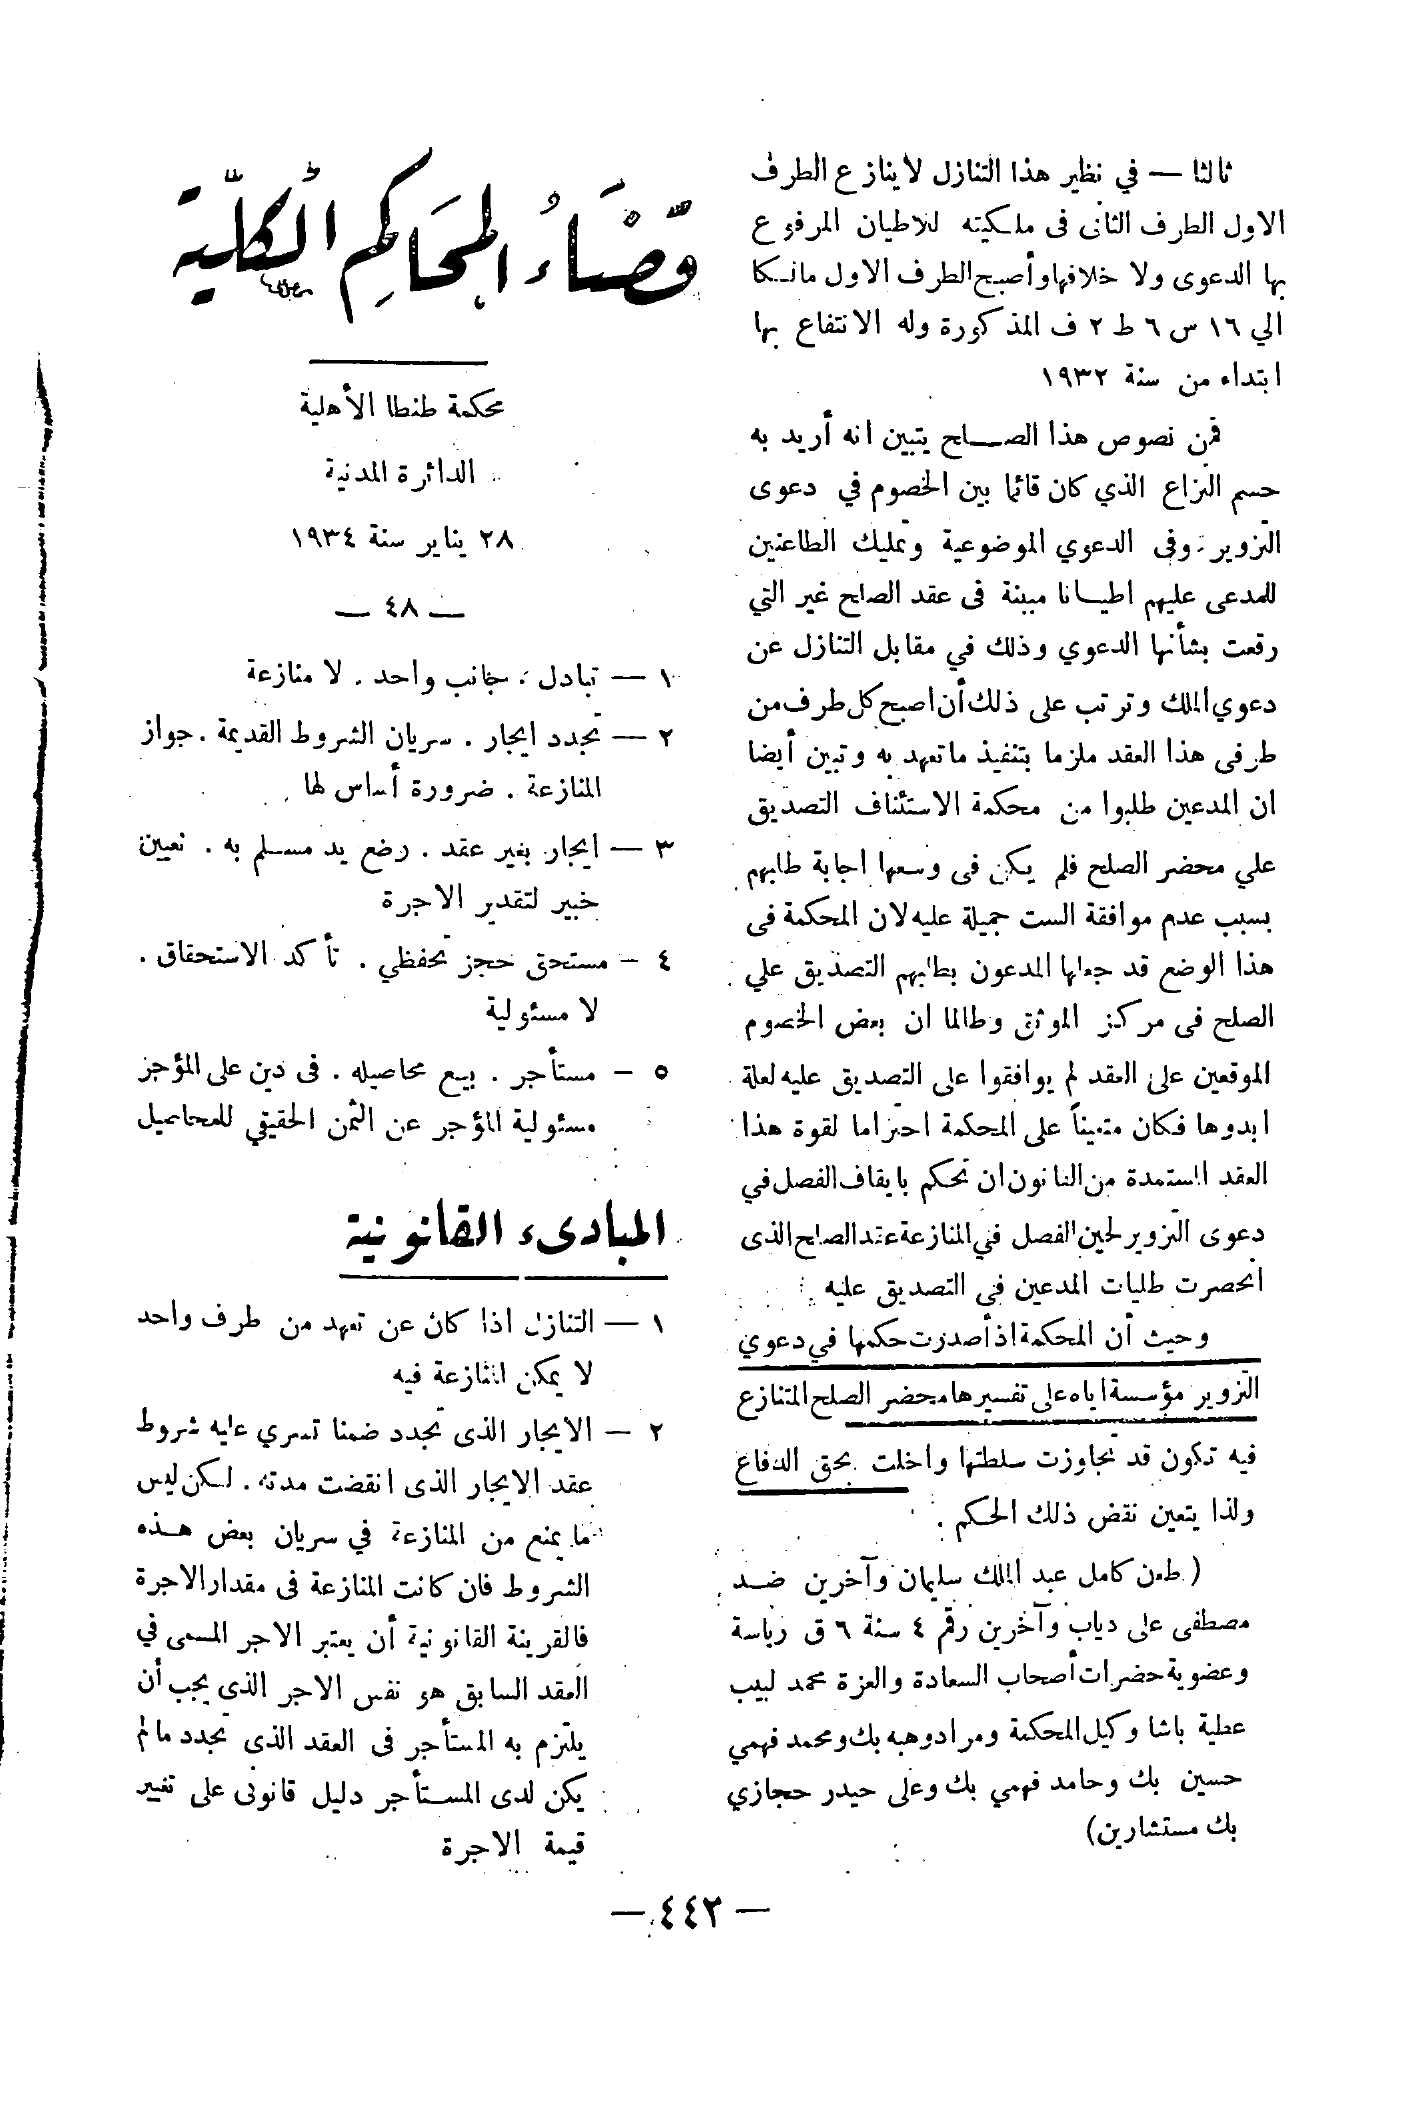 ثالثا — في نظير هذا التنازل لا ينازع الطرف
الاول الطرف الثانى فى ملكيته للاطيان المرفوع
بها الدعوى ولا خلافها وأصبح الطرف الاول مالكا
الي ١٦ س ٦ ط ٢ ف المذكورة وله الانتفاع بها
ابتداء من سنة ١٩٣٢
فمن نصوص هذا الصلح يتبين انه أريد به
حسم النزاع الذي كان قائما بين الخصوم في دعوى
التزوير وفى الدعوي الموضوعية وتمليك الطاعنين
للمدعى عليهم اطيانا مبينة فى عقد الصلح غير التي
رفعت بشأنها الدعوي وذلك في مقابل التنازل عن
دعوي الملك وترتب على ذلك أن اصبح كل طرف من
طرفى هذا العقد ملزما بتنفيذ ما تعهد به وتبين أيضا
ان المدعين طلبوا من محكمة الاستئناف التصديق
علي محضر الصلح فلم يكن فى وسعها اجابة طلبهم
بسبب عدم موافقة الست جميلة عليه لان المحكمة فى
هذا الوضع قد جعلها المدعون بطلبهم التصديق علي
الصلح فى مركز الموثق وطالما ان بعض الخصوم
الموقعين على العقد لم يوافقوا على التصديق عليه لعلة
ابدوها فكان متعيناً على المحكمة احتراما لقوة هذا
العقد المستمدة من القانون ان تحكم بايقاف الفصل في
دعوى التزوير لحين الفصل في المنازعة عقد الصلح الذى
انحصرت طلبات المدعين فى التصديق عليه
وحيث أن المحكمة اذ أصدرت حكمها في دعوي
التزوير مؤسسة اياه على تفسيرها محضر الصلح المتنازع
فيه تكون قد تجاوزت سلطتها واخلت بحق الدفاع
ولذا يتعين نقض ذلك الحكم .
( طعن كامل عبد الملك سليمان وآخرين ضد
مصطفى على دياب وآخرين رقم ٤ سنة ٦ ق رياسة
وعضوية حضرات أصحاب السعادة والعزة محمد لبيب
عطية باشا وكيل المحكمة ومراد وهبه بك ومحمد فهمي
حسين بك وحامد فهمي بك وعلى حيدر حجازي
بك مستشارين)
قضاء المحاكم الكلية
محكمة طنطا الأهلية
الدائرة المدنية
٢٨ يناير سنة ١٩٣٤
— ٤٨ —
١ — تبادل . جانب واحد . لا منازعة
٢ — تجدد ايجار . سريان الشروط القديمة . جواز
المنازعة . ضرورة أساس لها
٣ — ايجار بغير عقد . وضع يد مسلم به . تعيين
خبير لتقدير الاجرة
٤ — مستحق حجز تحفظي . تأكد الاستحقاق .
لا مسئولية
٥ — مستأجر . بيع محاصيله . فى دين على المؤجر
مسئولية المؤجر عن الثمن الحقيقي للمحاصيل
المبادىء القانونية
١ — التنازل اذا كان عن تعهد من طرف واحد
لا يمكن المنازعة فيه
٢ — الايجار الذى تجدد ضمنا تسري عليه شروط
عقد الايجار الذى انقضت مدته . لكن ليس
ما يمنع من المنازعة في سريان بعض هذه
الشروط فان كانت المنازعة فى مقدار الاجرة
فالقرينة القانونية أن يعتبر الاجر المسمى في
العقد السابق هو نفس الاجر الذي يجب أن
يلتزم به المستأجر فى العقد الذى تجدد ما لم
يكن لدى المستأجر دليل قانونى على تغيير
قيمة الاجرة
— ٤٤٢ —